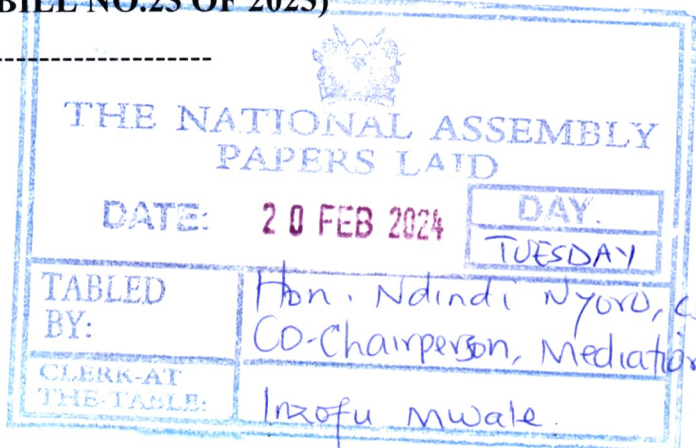 BILL NO.23 OF 2023)
THE NATIONAL ASSEMBLY
PAPERS LAID
DATE: 20 FEB 2024
DAY.
TUESDAY
TABLED BY:
Hon. Ndindi Nyoro,
CO-Chairperson, Mediation
CLERK-AT THE-TABLE:
Inzofu Mwale.